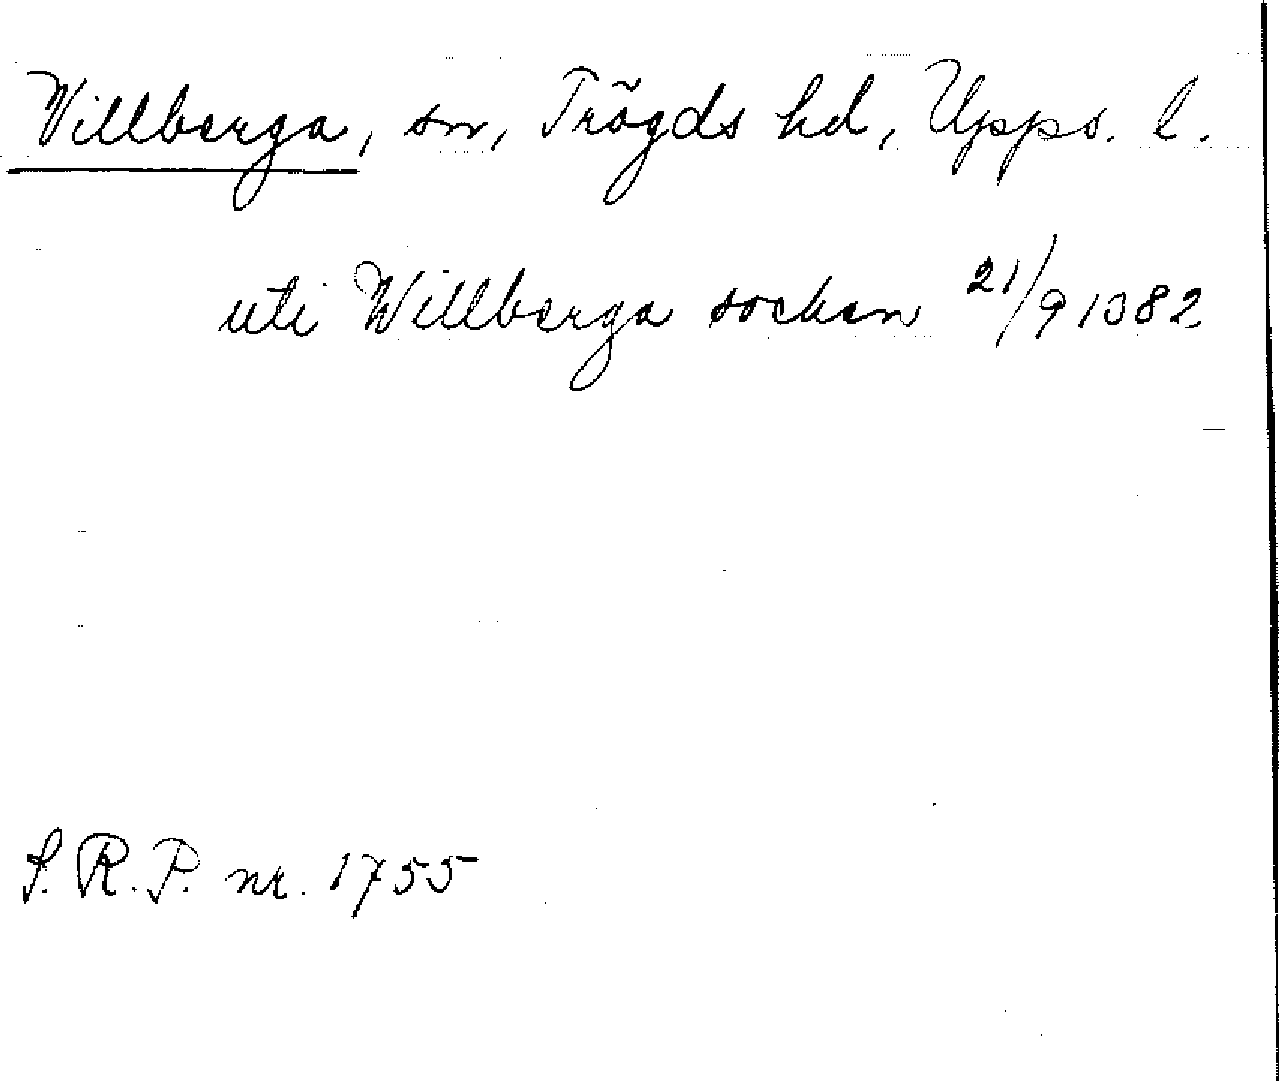 Villberga, sn, Trögds hd, Upps. l.
uti Willberga socken 21/9 1382
S.R.P. nr. 1755